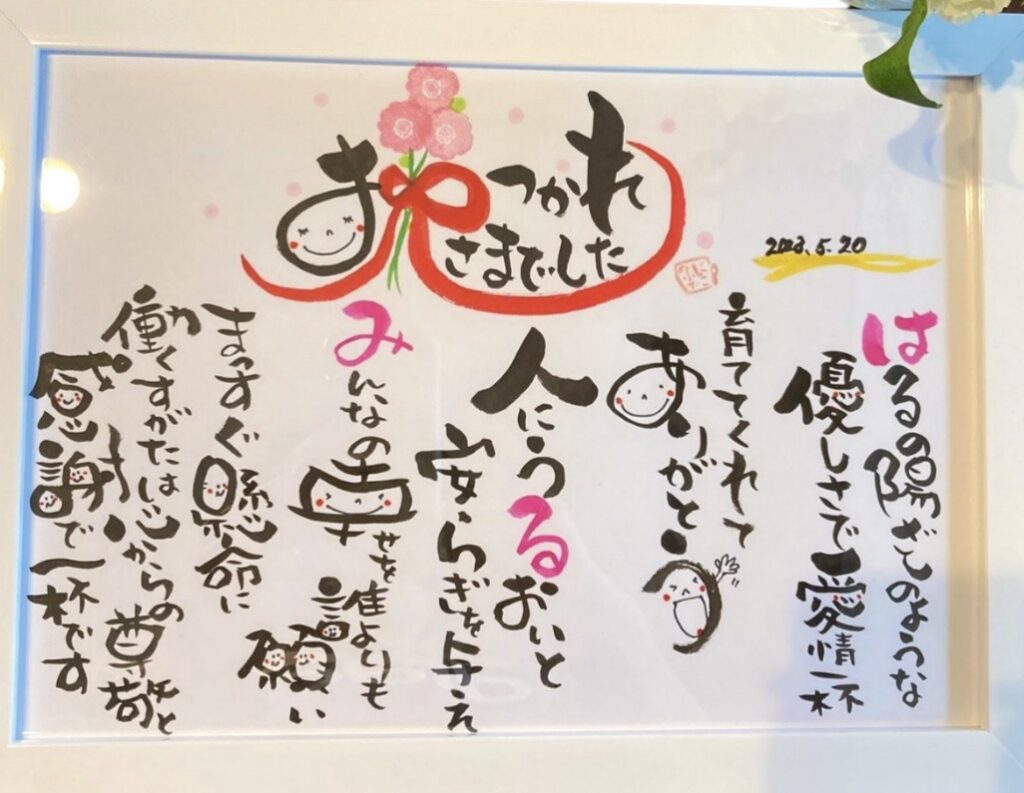 おつかれ
さまでした
2023.5.20
はるの陽ざしのような
優しさで愛情一杯
育ててくれて
ありがとう
人にうるおいと
安らぎを与え
みんなの幸せを誰よりも
願い
まっすぐ懸命に
働くすがたは心からの尊敬と
感謝で一杯です